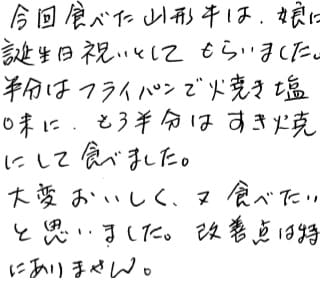 今回食べた山形牛は、娘に
誕生日祝いとしてもらいました。
半分はフライパンで焼き塩
味に、もう半分はすき焼
にして食べました。
大変おいしく、又食べたい
と思いました。改善点は特
にありません。